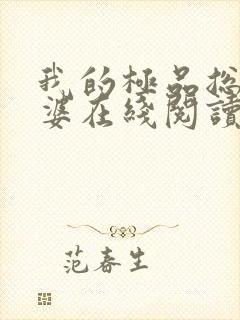 我的極品總
婆在綫閱讀
范春生